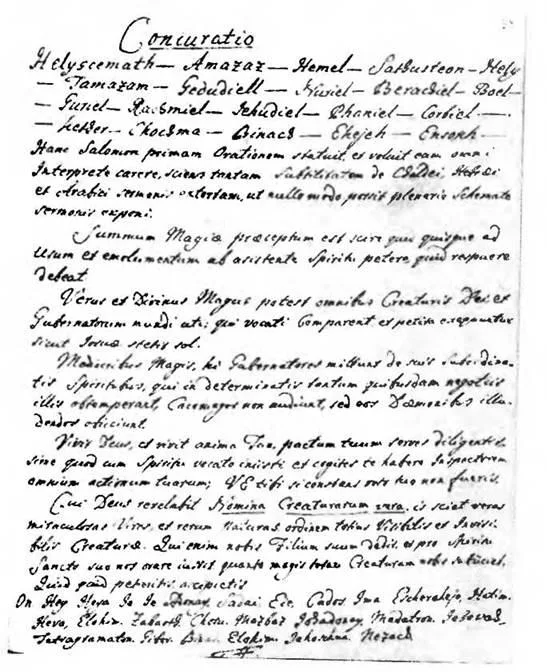 Concuratio
Helyscemath — Amazaz — Hemel — Sathusteon — Hely
— Tamazam — Gedudiell — Nuriel — Berachiel — Boel —
— Guriel — Rachmiel — Iehudiel — Phaniel — Corbiel —.
— Kether — Chochma — Binach — Ehejeh — Ensoph —
Hanc Salomon primam Orationem statuit, et voluit eam omni
Interprete carere, sciens tantam subtilitatem de Chaldei, Hebræi
et Arabici sermonis extortam, ut nullo modo possit plenario Schemate
sermonis exponi.
Summum Magiæ præceptum est scire quid quisque ad
Usum et emolumentum ab asistente Spiritu petere quid respuere
debeat.
Verus et Divinus Magus potest omnibus Creaturis Dei et
Gubernatorum mundi uti; qui vocati Comparent et petita
sicut Iosuæ stetit sol.
Mediocribus Magis, hi Gubernatores mittunt de suis Subordina-
tis Spiritibus, qui in determinatis tantum quibusdam negotiis
illis obtemperant, Cacomagos non audiunt, sed eos Dæmonibus illu-
dendos obiiciunt.
Vivit Deus, et vivit anima Tua, pactum tuum serves diligenter
sine quod cum Spiritu vocato iniisti et cogites te habere Inspectorem
omnium actionum tuarum; VÆ tibi si constans voto tuo non fueris.
Cui Deus revelabit Nomina Creaturarum vera, is sciet veras
miraculosas Vires, et rerum Naturas ordinem totius Visibilis et Invisi-
bilis Creaturæ. Qui enim nobis Filium suum dedit, et pro Spiritu
Sancto suo nos orare iussit quanto magis totam Creaturam nobis
Quid quid petieritis accipietis
On Hey Heya Ia Ie Adonay, Sadai Eie, Cados Ima Eschereheje, Hatim.
Heva, Elohim. Zabaoth, Mazbaz Madatron.
Tetragramaton. Gibor. Binar. Elohim. Jehoschua Nezach